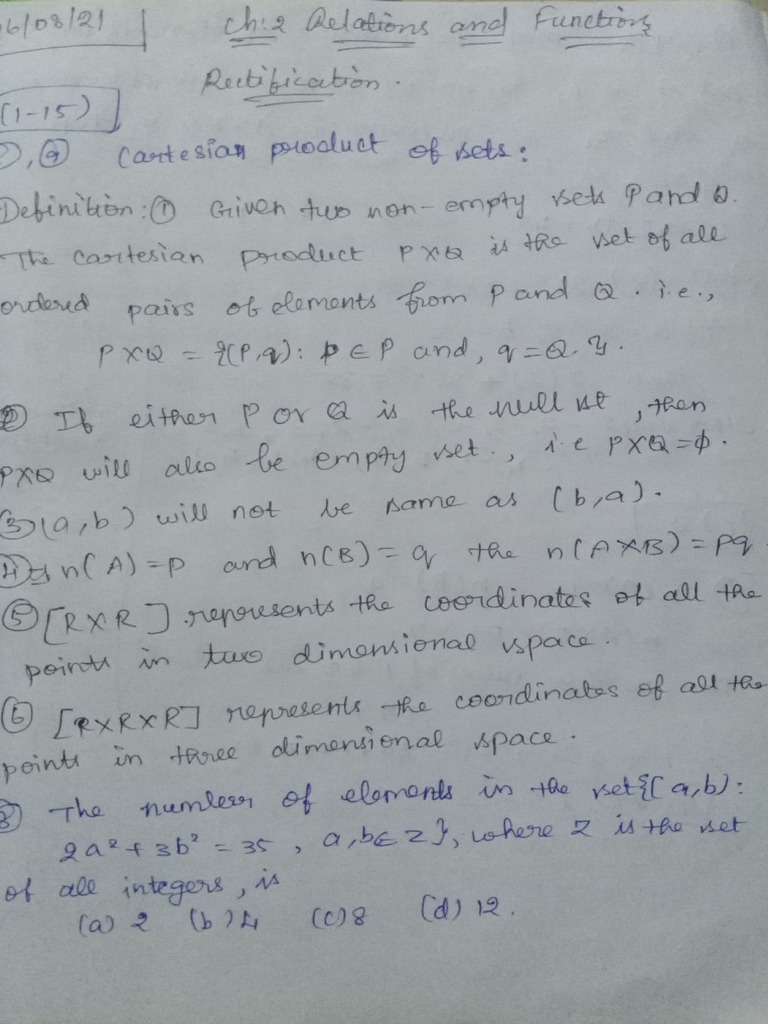 6/08/21
Ch:2 Relations and Functions
Rectification.
(1-15)
Cartesian product of sets:
Definition: ① Given two non-empty sets P and Q.
The cartesian product PXQ is the set of all
ordered pairs of elements from P and Q. i.e.,
PXQ = {(P,q): p ∈ P and, q = Q. }.
② If either P or Q is the null set, then
PXQ will also be empty set., i.e PXQ = ϕ.
③ (a,b) will not be same as (b,a).
④ If n(A) = p and n(B) = q the n(AXB) = pq
⑤ [RXR] represents the coordinates of all the
points in two dimensional space.
⑥ [RXRXR] represents the coordinates of all the
points in three dimensional space.
The number of elements in the set {(a,b):
2a² + 3b² = 35, a,b ∈ Z}, where Z is the set
of all integers, is
(a) 2 (b) 4 (c) 8 (d) 12.